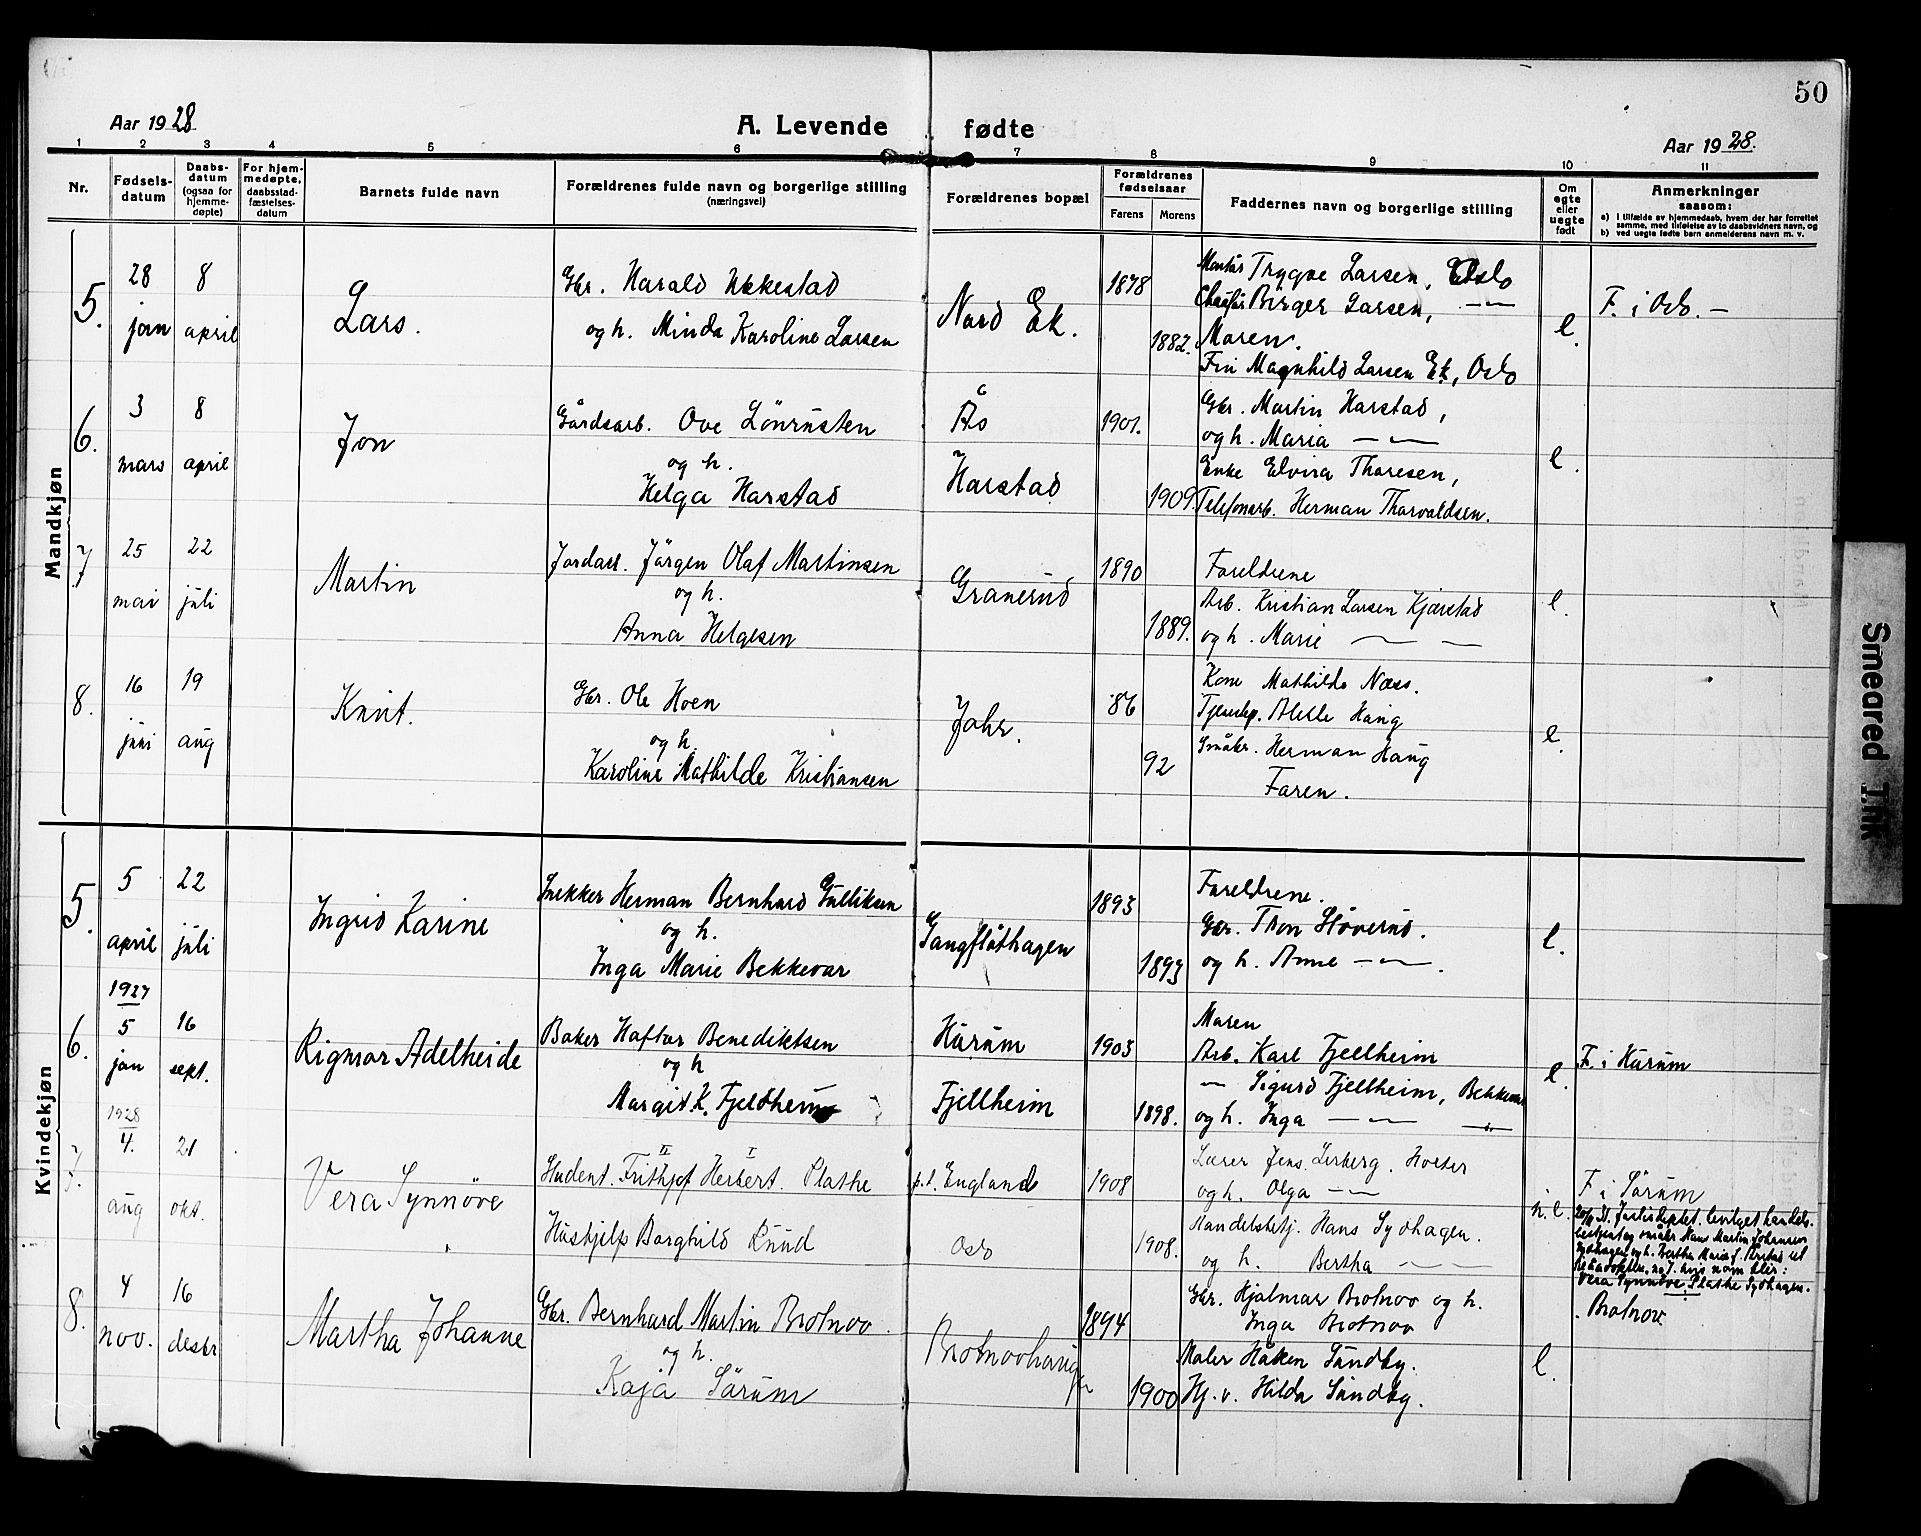 50
Aar 1928
A. Levende fødte
Aar 1928.
1 2 3 4 5 6 7 8 9 10 11
Nr.
Fødsels-
datum
Daabs-
datum
(ogsaa for
hjemme-
døpte)
For hjem-
medøpte,
daabsstad-
fæstelses-
datum
Barnets fulde navn
Forældrenes fulde navn og borgerlige stilling
(næringsvei)
Forældrenes bopæl
Forældrenes
fødselsaar
Farens
Morens
Faddernes navn og borgerlige stilling
Om
egte
eller
uegte
født
Anmerkninger
saasom:
a) i tilfælde av hjemmedaab, hvem der har forrettet
samme, med tilføielse av to daabsvidners navn, og
b) ved uegte fødte barn anmelderens navn m. v.
Mandkjøn
5.
28
jan
8
april
Lars.
Gbr. Harald
og h. Minda Karoline Larsen
Nord Ek.
1878
1882.
Trygve Larsen, Oslo
Birger Larsen, — —
Moren.
Magnhild Larsen Ek, Oslo
e.
F. i Oslo. —
6.
3
mars
8
april
Jon
Gårdsarb. Ove Lönrusten
og h.
Helga Harstad
Ås
Harstad
1901.
1909.
Gbr. Martin Harstad,
og h. Maria — —
Enke Elvira Thoresen,
Telefonarb. Herman Thorvaldsen.
e.
7
25
mai
22
juli
Martin
Jordarb. Jörgen Olaf Martinsen
og h.
Anna Helgesen
Granerud
1890
1889.
Foreldrene
Arb. Kristian Larsen Kjærstad
og h. Marie — —
e.
8.
16
juni
19
aug
Knut.
Gbr. Ole Hoen
og h.
Karoline Mathilde Kristiansen
Johr.
86
92
Kone Mathilde Næss.
Haug
Småbr. Herman Haug
Faren.
e.
Kvindekjøn
5.
5
april
22
juli
Ingrid Karine
Snekker Herman Bernhard Gulliksen
og h.
Inga Marie Bekkevar
Gangflöthagen
1893
1893
Foreldrene.
Gbr. Thon Stöverud.
og h. Anne — — .
e.
6.
1927
5
jan
16
sept.
Rigmor Adelheide
Baker Haftor Benediktsen
og h
Margit K. Fjeldheim
Hurum
Fjellheim
1903
1898.
Moren
Arb. Karl Fjellheim
— Sigurd Fjellheim,
og h. Inga — —
e.
F. i Hurum
7.
1928
4.
aug
21
okt.
Vera Synnöve
II I
Student. Frithjof Herbert. Plathe
Hushjelp Borghild Ruud
p.t. England
Oslo
1908
1908.
Lærer Jens Lerberg. Holter
og h. Olga — —
Handelsbetj. Hans Sydhagen.
og h. Bertha — —
u.e.
F i Sörum
Justisdeptet. bevilget handels-
Hans Martin Johansen
Sydhagen og h. Bertha Marie
no 7. hvis navn blir:
Vera Synnöve Plathe Sydhagen.
8.
4
nov.
16
desbr
Martha Johanne
Gbr. Bernhard Martin Brotnov.
og h.
Kaja Sörum
Brotnovhaugen
1894
1900
Gbr. Hjalmar Brotnov og h.
Inga Brotnov
Maler Håken Sundby.
Hj. v. Hilda Sundby.
e.
. Brotnov.
Smeared Ink